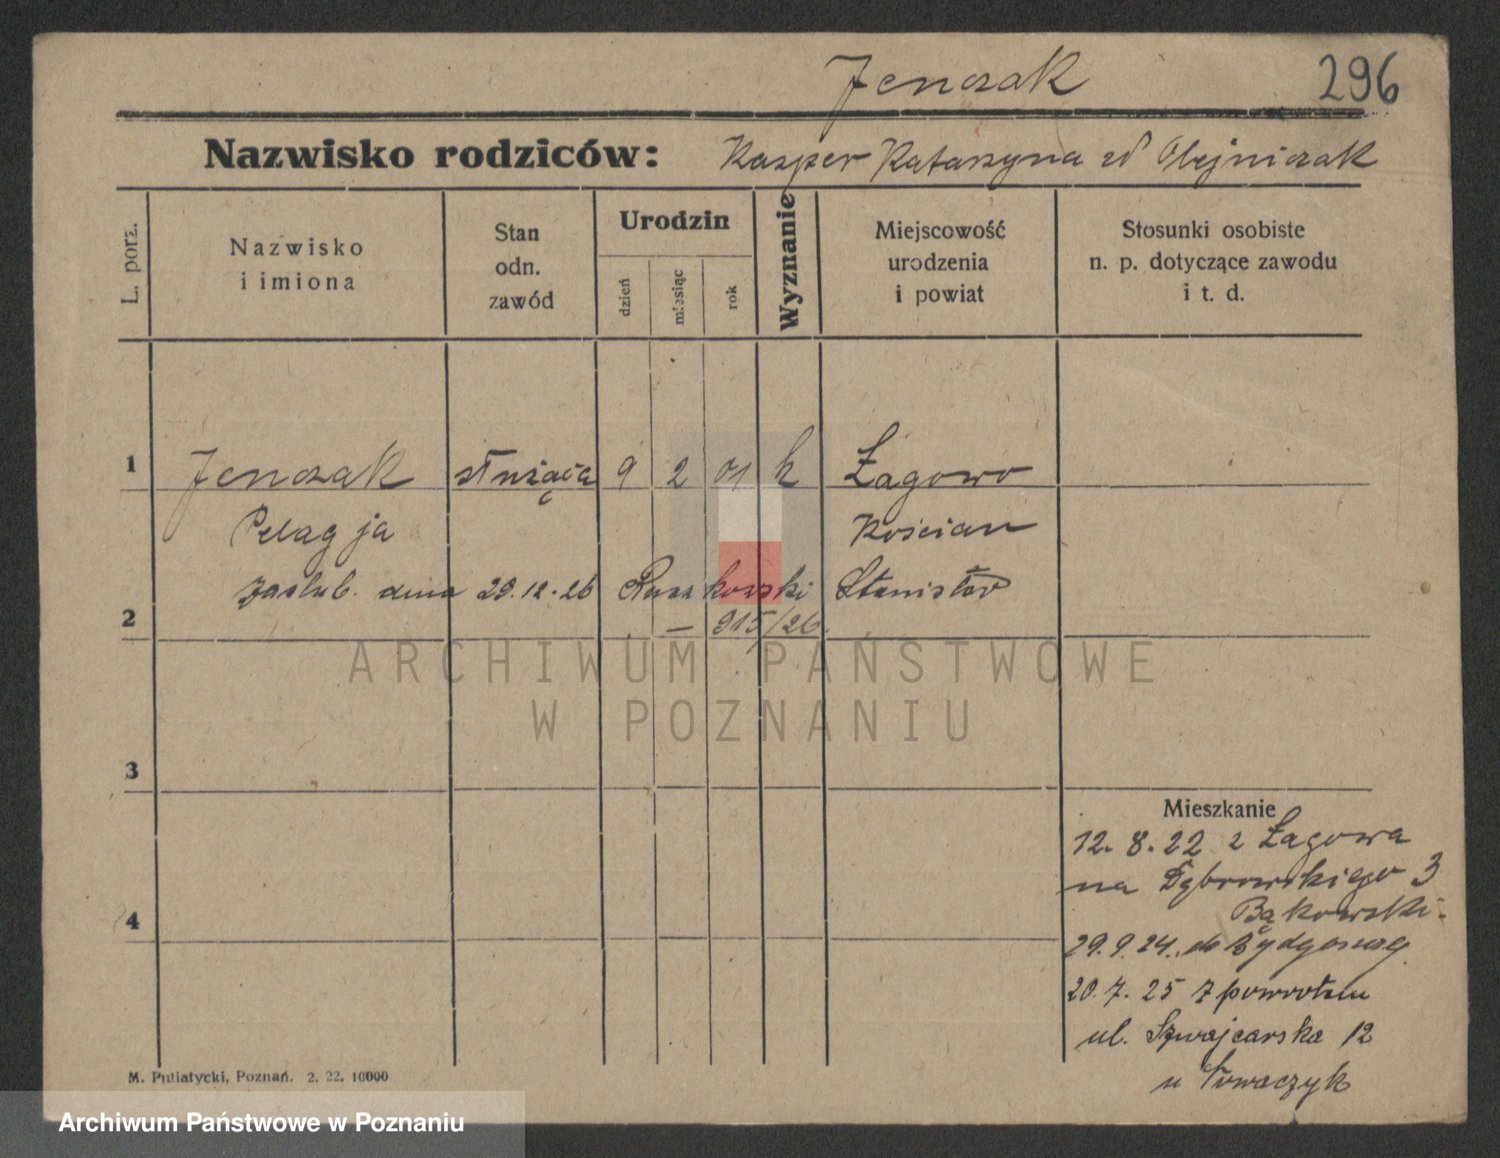 Jenczak 296
Nazwisko rodziców: Kasper Katarzyna zd Olejniczak
L. porz.
Nazwisko
i imiona
Stan
odn.
zawód
Urodzin
dzień
miesiąc
rok
Wyznanie
Miejscowość
urodzenia
i powiat
Stosunki osobiste
n. p. dotyczące zawodu
i t. d.
1 Jenczak służąca 9 2 01 k Łagowo
Pelagja Kościan
zaślub. dnia 29.12.26 Ruszkowski Stanisław
2 – 915/26.
ARCHIWUM PAŃSTWOWE
W POZNANIU
3
Mieszkanie
12. 8. 22 z Łagowa
na Dąbrowskiego 3
Bąkowski.
4
29. 9. 24. do Bydgoszcz
20. 7. 25 z powrotem
ul. Szwajcarska 12
u
M. Putiatycki, Poznań. 2. 22. 10000
Archiwum Państwowe w Poznaniu